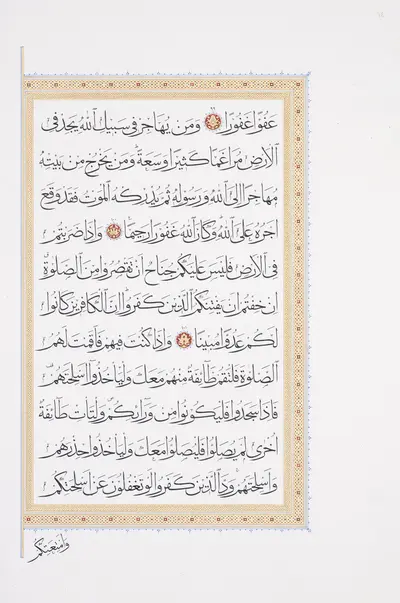 عَفُوًّا غَفُورًا ۝ وَمَن يُهَاجِرْ فِي سَبِيلِ اللَّهِ يَجِدْ فِي
الْأَرْضِ مُرَاغَمًا كَثِيرًا وَسَعَةً وَمَن يَخْرُجْ مِن بَيْتِهِ
مُهَاجِرًا إِلَى اللَّهِ وَرَسُولِهِ ثُمَّ يُدْرِكْهُ الْمَوْتُ فَقَدْ وَقَعَ
أَجْرُهُ عَلَى اللَّهِ وَكَانَ اللَّهُ غَفُورًا رَّحِيمًا ۝ وَإِذَا ضَرَبْتُمْ
فِي الْأَرْضِ فَلَيْسَ عَلَيْكُمْ جُنَاحٌ أَن تَقْصُرُوا مِنَ الصَّلَوٰةِ
إِنْ خِفْتُمْ أَن يَفْتِنَكُمُ الَّذِينَ كَفَرُوا إِنَّ الْكَافِرِينَ كَانُوا
لَكُمْ عَدُوًّا مُّبِينًا ۝ وَإِذَا كُنتَ فِيهِمْ فَأَقَمْتَ لَهُمُ
الصَّلَوٰةَ فَلْتَقُمْ طَائِفَةٌ مِّنْهُم مَّعَكَ وَلْيَأْخُذُوا أَسْلِحَتَهُمْ
فَإِذَا سَجَدُوا فَلْيَكُونُوا مِن وَرَائِكُمْ وَلْتَأْتِ طَائِفَةٌ
أُخْرَىٰ لَمْ يُصَلُّوا فَلْيُصَلُّوا مَعَكَ وَلْيَأْخُذُوا حِذْرَهُمْ
وَأَسْلِحَتَهُمْ وَدَّ الَّذِينَ كَفَرُوا لَوْ تَغْفُلُونَ عَنْ أَسْلِحَتِكُمْ
وَأَمْتِعَتِكُمْ